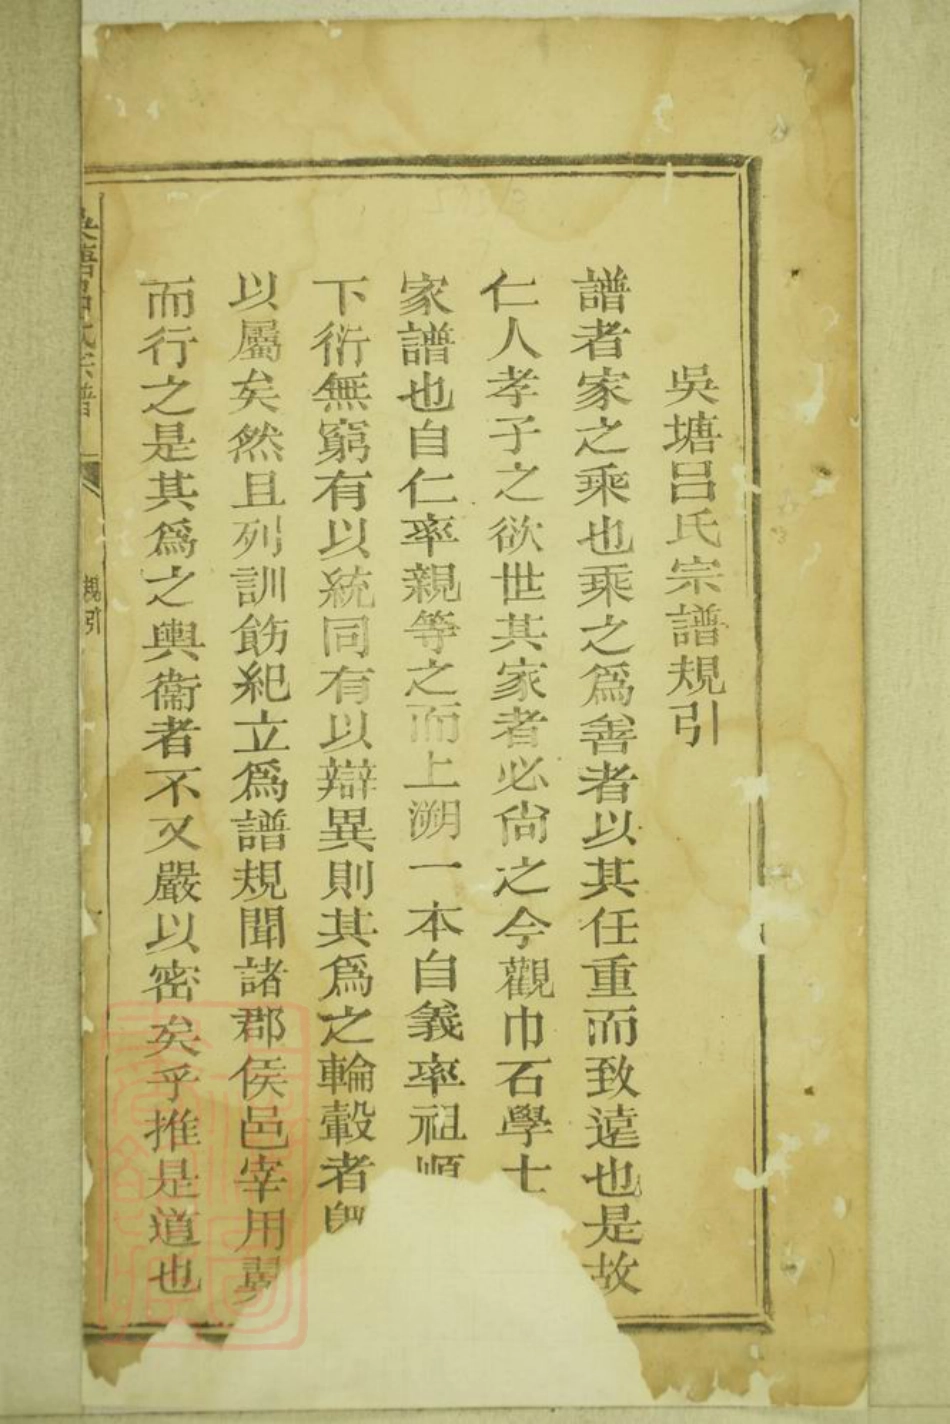 吳塘呂氏宗譜規引
譜者家之乘也乘之爲善者以其任重而致遠也是故
仁人孝子之欲世其家者必尙之今觀巾石學士
家譜也自仁率親等之而上溯一本自義率祖順
下衍無窮有以統同有以辯異則其爲之輪轂者
以屬矣然且列訓飭紀立爲譜規聞諸郡侯邑宰用翼
而行之是其爲之輿衞者不又嚴以密矣乎推是道也
吳塘呂氏宗譜
規引